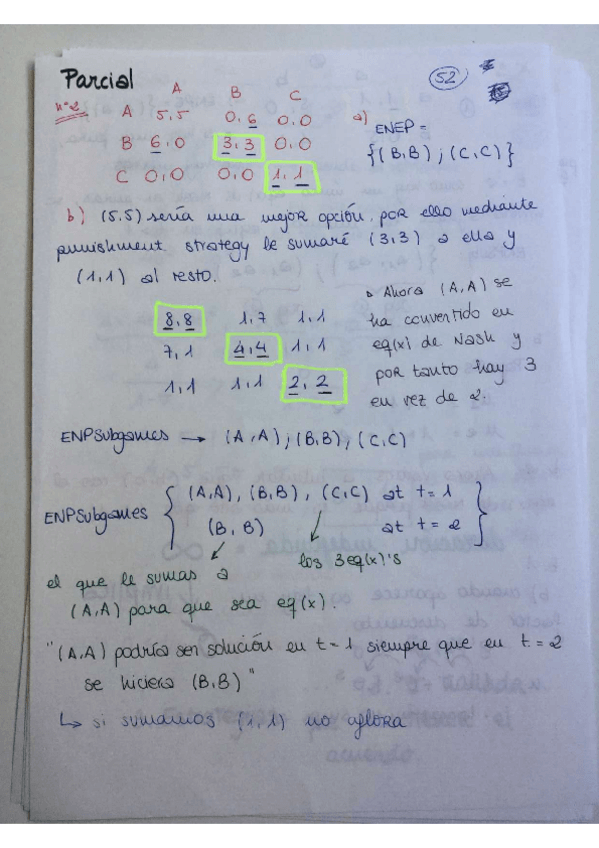 Parcial
52
nº2
A B C
A 5,5 0,6 0,0
B 6,0 3,3 0,0
C 0,0 0,0 1,1
a) ENEP =
{(B,B) ; (C,C)}
b) (5,5) sería una mejor opción, por ello mediante
punishment strategy le sumaré (3,3) a ella y
(1,1) al resto.
8,8 1,7 1,1
7,1 4,4 1,1
1,1 1,1 2,2
Ahora (A,A) se
ha convertido en
eq(x) de Nash y
por tanto hay 3
en vez de 2.
ENPSubgames → (A,A) ; (B,B) ; (C,C)
ENPSubgames { (A,A), (B,B), (C,C) at t=1
(B,B) at t=2 }
los 3 eq(x)'s
el que le sumas a
(A,A) para que sea eq(x).
"(A,A) podría ser solución en t=1 siempre que en t=2
se hiciera (B,B)"
↳ si sumamos (1,1) no aflora